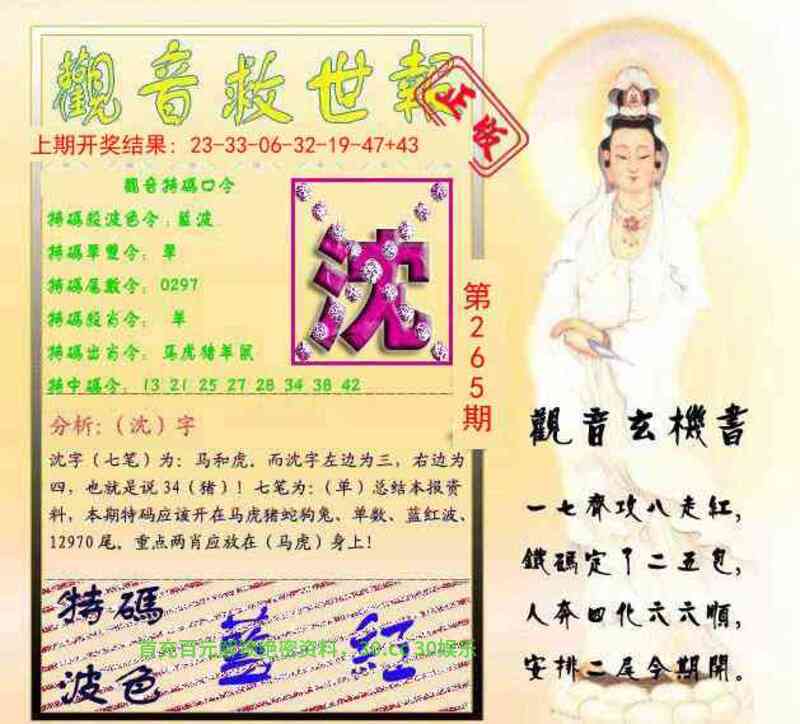 觀音救世報
正版
上期开奖结果：23-33-06-32-19-47+43
觀音特碼口令
特碼殺波色令：藍波
特碼單雙令：單
特碼尾數令：0297
特碼殺肖令：單
特碼出肖令：馬虎猪羊鼠
特中碼令：13 21 25 27 28 34 38 42
沈
第265期
分析:（沈）字
沈字（七笔）为：马和虎．而沈字左边为三，右边为
四，也就是说34（猪）！七笔为：（单）总结本报资
料，本期特码应该开在马虎猪蛇狗兔、单数、蓝红波、
12970尾．重点两肖应放在（马虎）身上！
觀音玄機書
一七齊攻八走紅，
鐵碼定了二五包，
人奔四化六六順，
安排二尾今期開。
特碼
波色
藍 紅
首充百元
絕密资料，
30娱乐